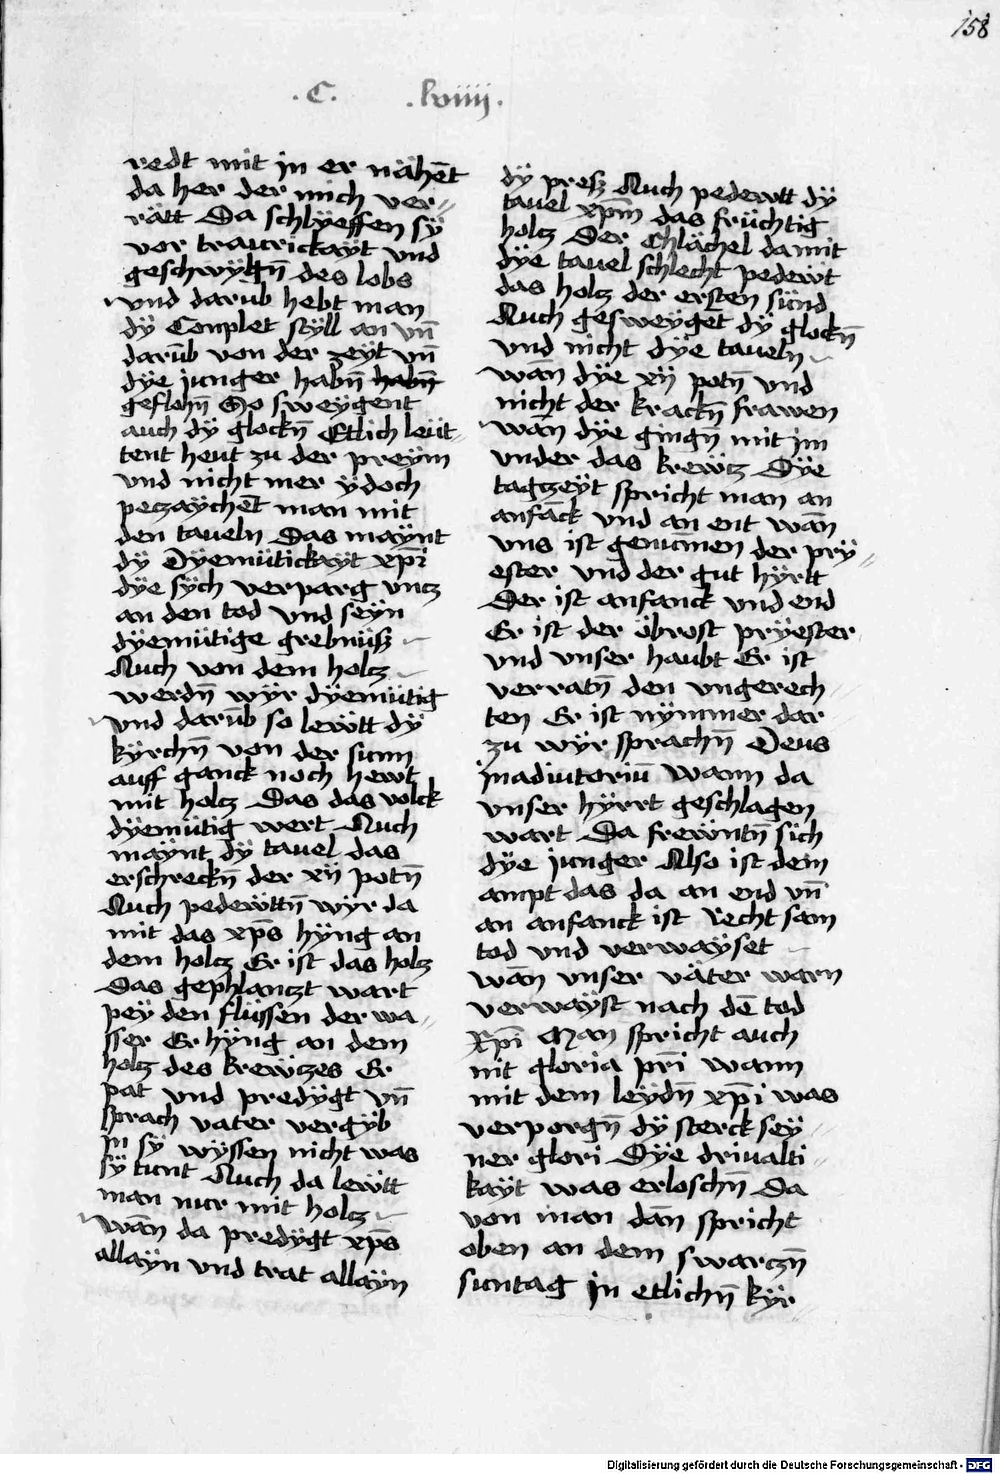 158
.C. .lviiij.
redt mit in er nähēt
da her der mich ver-
rätt Da schlÿeffen sÿ
vor traurickaÿt vnd
geschwÿgñ des lobs
vnd darub hebt man
dÿ Conplet stÿll an vñ
darūb von der zeÿt vñ
dÿe junger habñ habñ
geflohñ So sweÿgent
auch dÿ glockñ Etlich leüt-
tent heut zu der preÿm
vnd nicht mer ÿdoch
pezaÿchēt man mit
den taueln Das maÿnt
dÿ Dÿemütickaÿt xp̄i
dÿe sÿch verparg vntz
an den tod vnd seÿn
dÿemütige grebnüsz
Auch von dem holtz
werdñ wÿr dÿemütig
vnd darūb so lewtt dÿ
kÿrchñ von der sunn
auff ganck noch hewt
mit holtz Das das volck
dÿemütig wert Auch
maÿnt dÿ tauel das
erschreckñ der xij potñ
Auch pedewttñ wÿr da
mit das xp̄s hÿng an
dem holtz Er ist das holtz
Das gephlantzt wart
peÿ den flüssen der wa-
sser Er hÿng an dem
holtz des krewtzes Er
pat vnd predÿgt vñ
sprach vater vergÿb
jn sÿ wÿssen nicht was
sÿ tunt Auch da lewtt
man nur mit holtz
wān da predÿgt xp̄s
allaÿn vnd trat allaÿn
dÿ presz Auch pedewtt dÿ
tauel xp̄m das früchtig
holtz Der Chlächel damit
dÿe tauel schlecht pedewt
das holtz der ersten sünd
Auch gesweÿgēt dÿ glockñ
vnd nicht dÿe taueln
wān dÿe xij potñ vnd
nicht der krackñ frawen
wān dÿe gingñ mit jm
vnder das krewtz Dÿe
tagzeÿt spricht man an
anfāck vnd an ent wān
vns ist genūmen der prÿ-
ester vnd der gut hÿrtt
Der ist anfanck vnd end
Er ist der öbrost prÿester
vnd vnser haubt Er ist
verratñ den vngerech-
ten Er ist nÿmmer dar
zu wÿr sprachñ Deus
jnadiutoriū Wann da
vnser hÿrrt geschlagen
wart Da frewntñ sich
dÿe junger Also ist dem
ampt das da an end vñ
an anfanck ist Recht sam
tod vnd verwaÿset
wān vnser väter warn
verwaÿst nach dē tod
Xp̄i Man spricht auch
nit gloria pr̄i wann
mit dem leÿdñ xp̄i was
verporgñ dÿ sterck seÿ-
ner glori Dÿe driualti-
kaÿt was erloschñ Da
von man dān spricht
oben an dem swarczñ
suntag jn etlichñ kÿr-
Digitalisierung gefördert durch die Deutsche Forschungsgemeinschaft - DFG